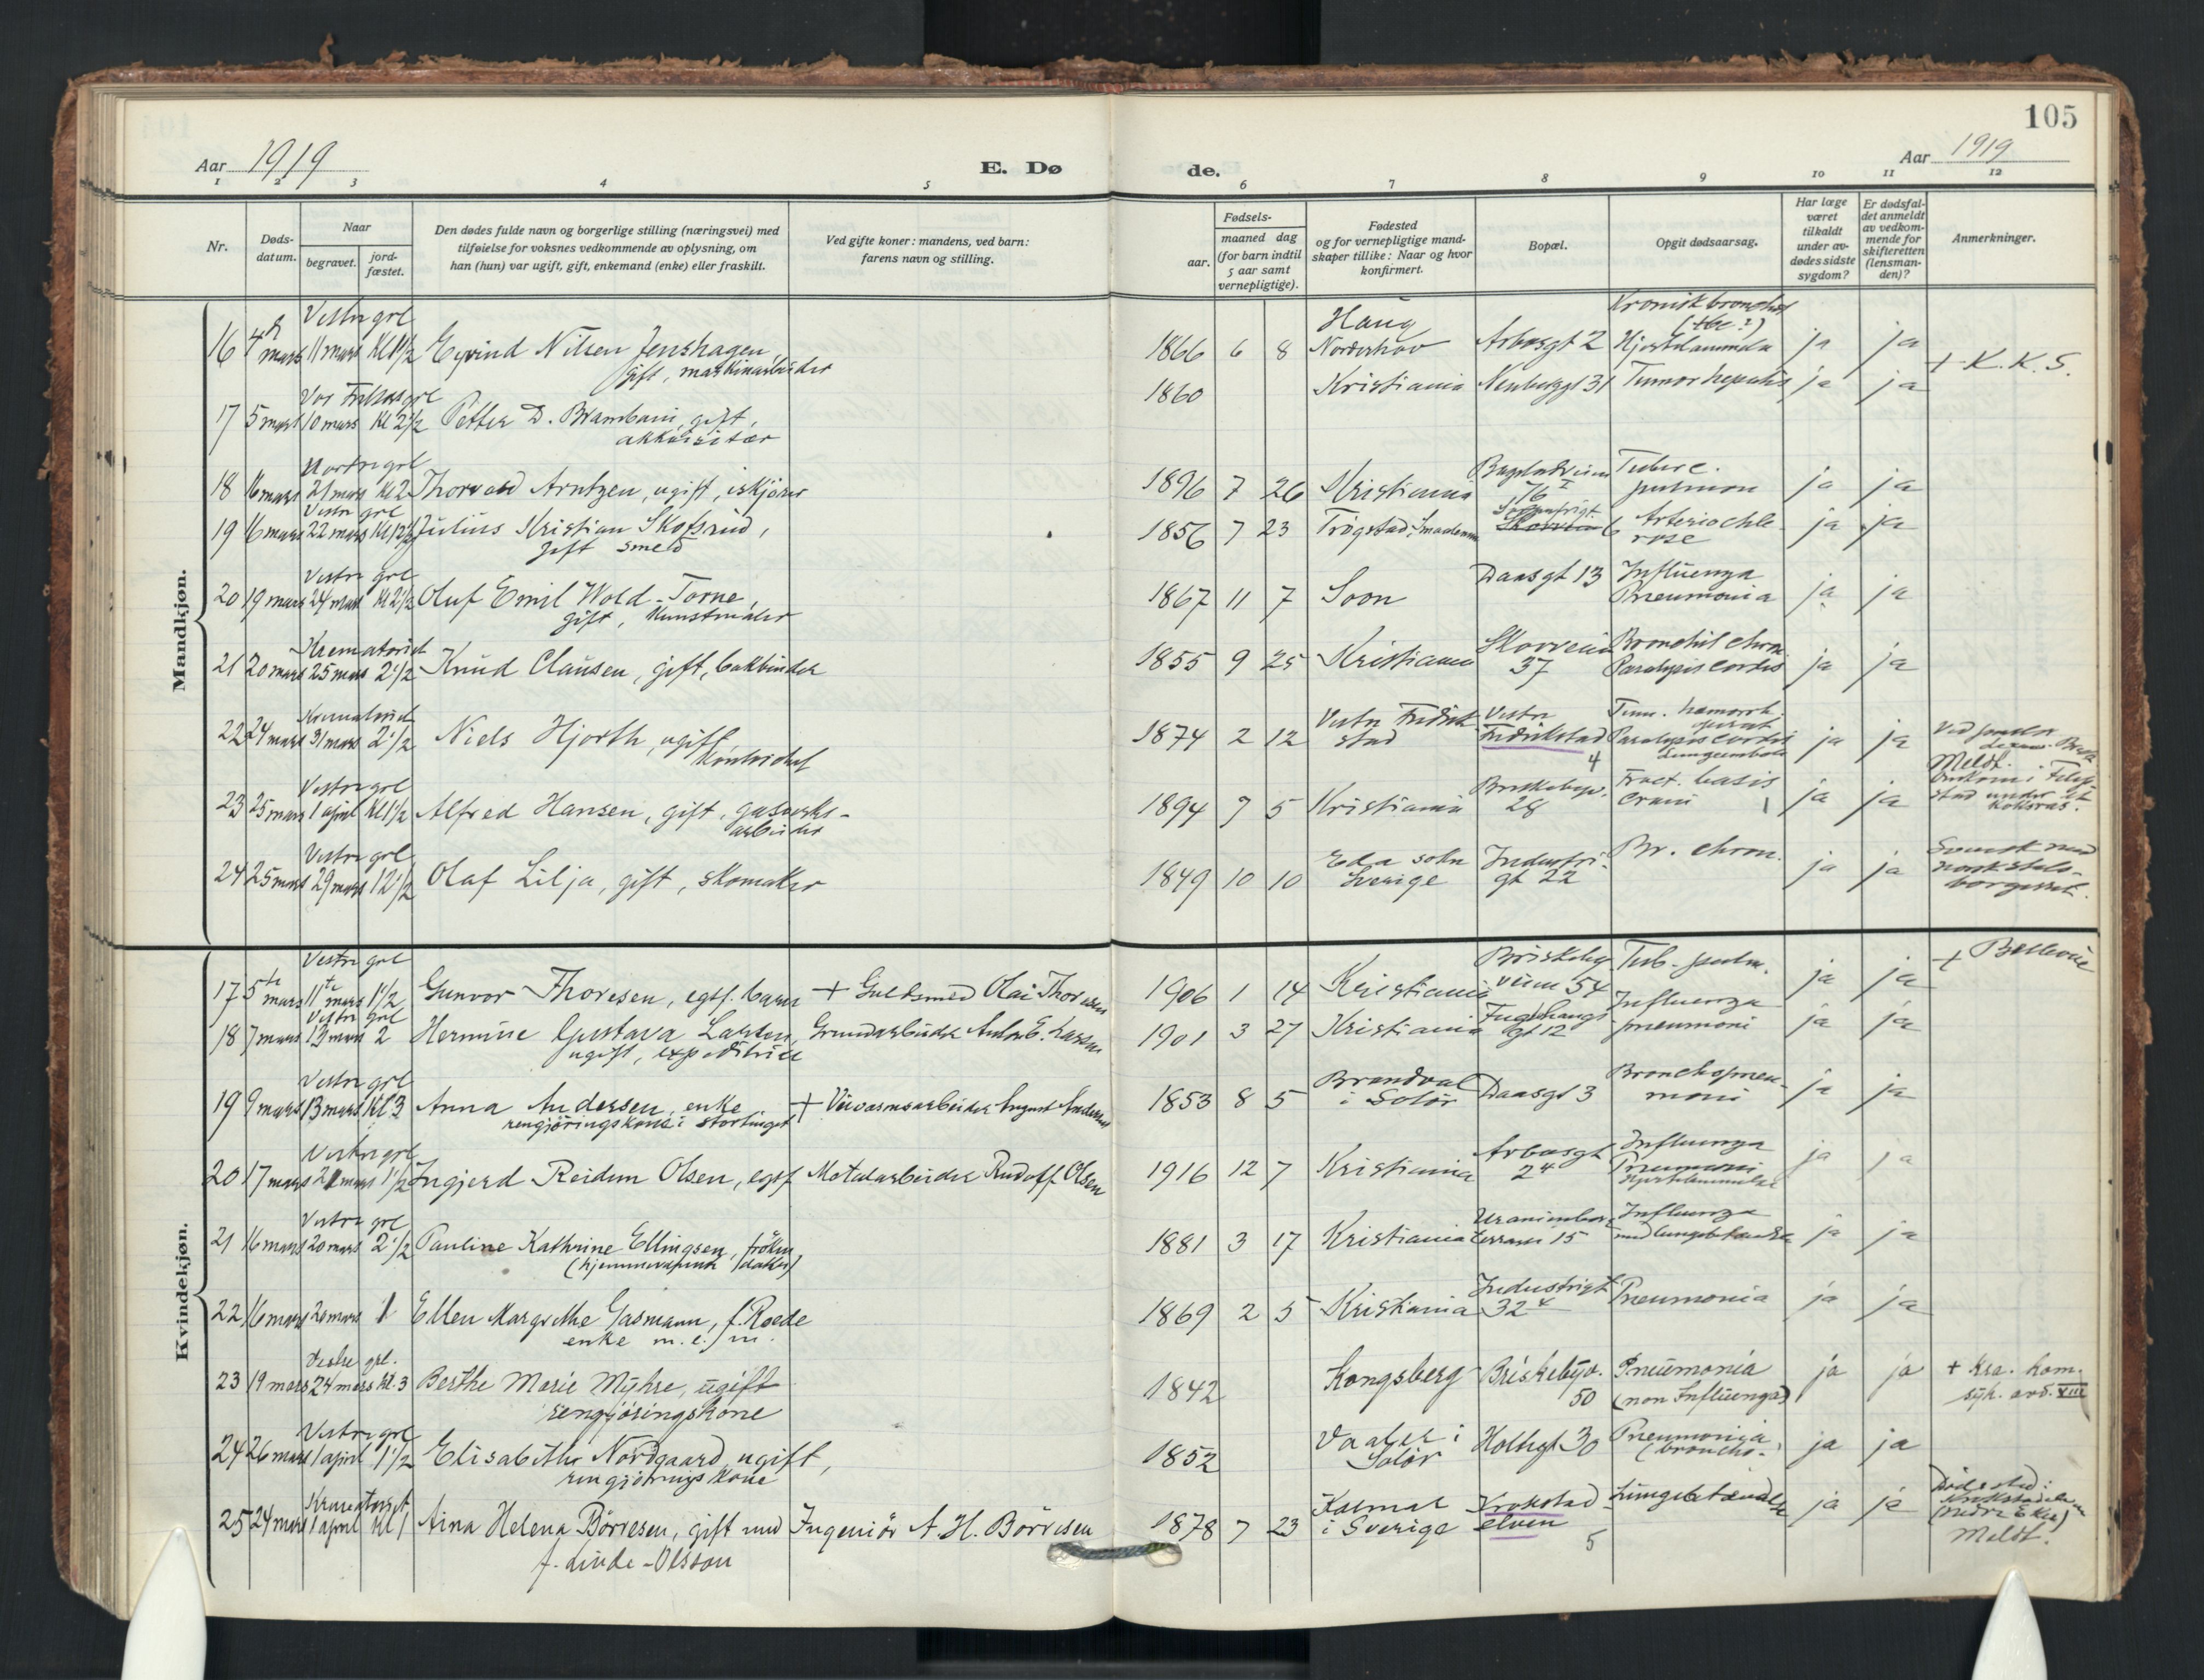 105
Aar 1919
E. Dø
de.
Aar 1919
1 2 3 4 5 6 7 8 9 10 11 12
Nr.
Døds-
datum.
Naar
begravet.
jord-
fæstet.
Den dødes fulde navn og borgerlige stilling (næringsvei) med
tilføielse for voksnes vedkommende av oplysning, om
han (hun) var ugift, gift, enkemand (enke) eller fraskilt.
Ved gifte koner: mandens, ved barn:
farens navn og stilling.
Fødsels-
aar.
maaned dag
(for barn indtil
5 aar samt
vernepligtige).
Fødested
og for vernepligtige mand-
skaper tillike: Naar og hvor
konfirmert.
Bopæl.
Opgit dødsaarsag.
Har læge
været
tilkaldt
under av-
dødes sidste
sygdom?
Er dødsfal-
det anmeldt
av vedkom-
mende for
skifteretten
(lensman-
den)?
Anmerkninger.
Mandkjøn.
Vestre grl
16 4 mars 11 mars Kl 1 1/2 Eyvind Nilsen Jenshagen
gift, maskinarbeider
1866 6 8 Haug Norderhov Arbosgt 2 Kronisk bronchit (tbc?) Hjertelammelse ja ja + K.K.S.
Vor Frelsers grl
17 5 mars 10 mars Kl 2 1/2 Petter D. Brambani, gift,
akkvisitør
1860 Kristiania Neuberggt 31 Tumor hepatis ja ja
Nordre grl
18 16 mars 21 mars Kl 2 Thorvald Arntzen, ugift, iskjører
1896 7 26 Kristiania 76 I Tuberc. pulmon ja ja
Vestre grl
19 16 mars 22 mars Kl 12 1/2 Julius Kristian Skofsrud,
gift smed
1856 7 23 Trøgstad, Smaalenene 6 Arteriochle-
rose ja ja
Vestre grl
20 19 mars 24 mars Kl 2 1/2 Oluf Emil Wold-Torne,
gift, Kunstmaler
1867 11 7 Soon Daasgt 13 Influenza
Pneumonia ja ja
Krematoriet
21 20 mars 25 mars 2 1/2 Knud Clausen, gift, bokbinder
1855 9 25 Kristiania Skovveien
37 Bronchit chron
Paralysis cordis ja ja
Krematoriet
22 24 mars 31 mars 2 1/2 Niels Hjorth, ugift
Kontorchef
1874 2 12 Vestre Fredrik-
stad Vestre
Fredrikstad
4 Tum. hæmorrh.
operat
Paralysis cordis
Lungeemboli ja ja
Meldt.
Vestre grl
23 25 mars 1 april Kl 1 1/2 Alfred Hansen, gift, gasverks-
arbeider
1894 9 5 Kristiania Briskebyv.
28 Fract. basis
cranii ja ja omkom i
stad under et
koksras.
Vestre grl
24 25 mars 29 mars 12 1/2 Olaf Lilja, gift, skomaker
1849 10 10 Eda sokn
Sverige Industri-
gt 22 Br. chron. ja ja Svensk med
norsk stats-
borgerret.
Kvindekjøn.
Vestre grl
17 5te mars 11te mars 1 1/2 Gunvor Thoresen, egtf. barn + Guldsmed Olai Thoresen
1906 1 14 Kristiania Briskeby
veien 54 Tub. pulm. ja ja + Bellevue
Vestre grl
18 7 mars 13 mars 2 Hermine Gustava Larsen, Grundarbeider Anton E. Larsen
ugift, expeditrice
1901 3 27 Kristiania Fuglehaugs
gt 12 Influenza
pneumoni ja ja
Vestre grl
19 9 mars 13 mars Kl 3 Anna Andersen, enke + Veivæsensarbeider August Andersen
rengjøringskone i stortinget
1853 8 5 Brandval
i Solør Daasgt 3 Bronchopneu-
moni ja ja
Vestre grl
20 17 mars 21 mars 1 1/2 Ingjerd Reidun Olsen, egtf Metalarbeider Rudolf Olsen
1916 12 7 Kristiania Arbosgt
2 4 Influenza
Pneumoni
Hjertelammelse ja ja
Vestre grl
21 16 mars 20 mars 2 1/2 Pauline Kathrine Ellingsen, frøken
(hjemmeværende datter)
1881 3 17 Kristiania Uranienborg
terrasse 15 Influenza
med lungebetændelse ja ja
22 16 mars 20 mars 1 Ellen Margrethe Gasmann, f. Roede
enke
1869 2 5 Kristiania Industrigt
32 4 Pneumonia ja ja
Vestre grl.
23 19 mars 24 mars Kl. 3 Berthe Marie Myhre, ugift
rengjøringskone
1842 Kongsberg Briskebyv.
50 Pneumonia
(non Influenza) ja ja + Kra. kom.
syk. avd. VIII
Vestre grl
24 26 mars 1 april 1 1/2 Elisabeth Nordgaard, ugift,
rengjøringskone
1852 Vaaler i
Solør Holtegt 30 Pneumonia
(broncho- ja ja
Krematoriet
25 24 mars 1 april Kl 1 Aina Helena Børresen, gift med Ingeniør A. H. Børresen
f. Linde-Olsson
1878 7 23 Kalmar
i Sverige Krokstad
elven
5 Lungebetændelse ja ja Dødssted:
Krokstadelven
(nedre Eker)
Meldt.